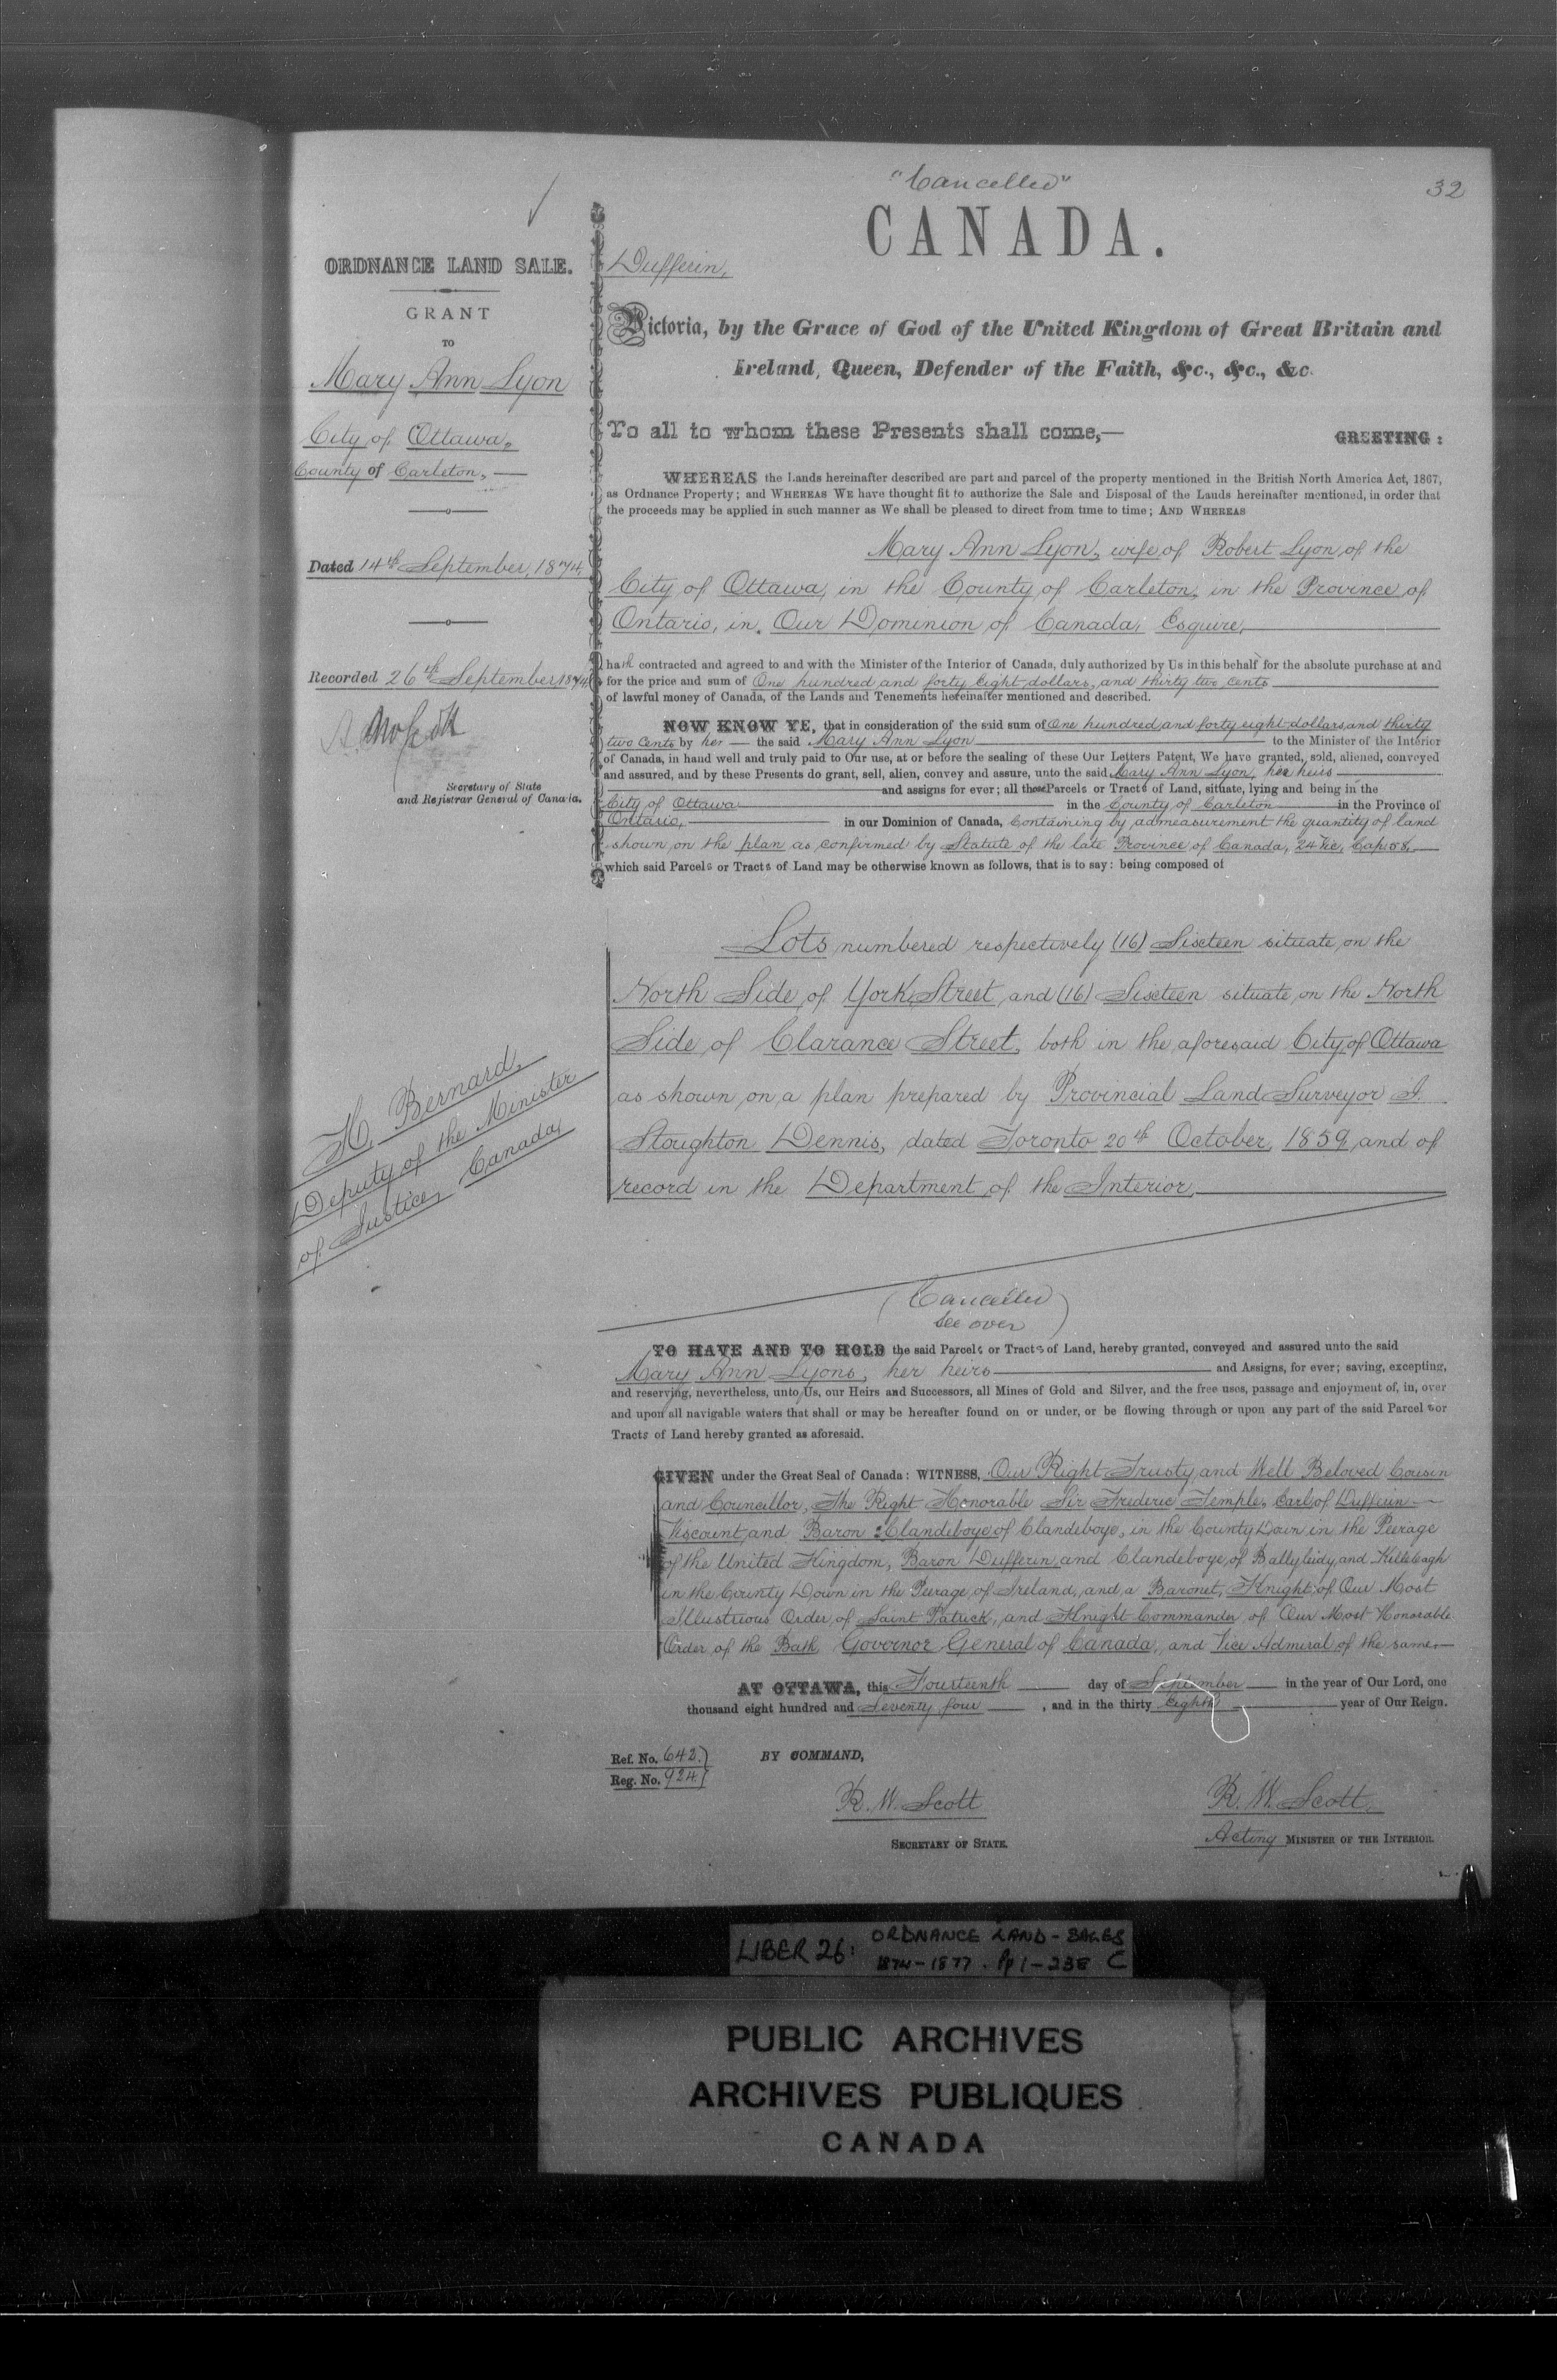 "Cancelled"
32
CANADA.
ORDNANCE LAND SALE.
GRANT
TO
Mary Ann Lyon
City of Ottawa,
County of Carleton,
Dated 14th September, 1874.
Recorded 26th September 1874.
Secretary of State
and Registrar General of Canada.
H. Bernard,
Deputy of the Minister
of Justice, Canada,
Dufferin,
Victoria, by the Grace of God of the United Kingdom of Great Britain and
Ireland, Queen, Defender of the Faith, &c., &c., &c.
To all to whom these Presents shall come,—
GREETING:
WHEREAS the Lands hereinafter described are part and parcel of the property mentioned in the British North America Act, 1867,
as Ordnance Property; and WHEREAS WE have thought fit to authorize the Sale and Disposal of the Lands hereinafter mentioned, in order that
the proceeds may be applied in such manner as We shall be pleased to direct from time to time; AND WHEREAS
Mary Ann Lyon, wife of Robert Lyon, of the
City of Ottawa, in the County of Carleton, in the Province of
Ontario, in Our Dominion of Canada, Esquire,
hath contracted and agreed to and with the Minister of the Interior of Canada, duly authorized by Us in this behalf for the absolute purchase at and
for the price and sum of One hundred and forty eight dollars, and thirty two cents
of lawful money of Canada, of the Lands and Tenements hereinafter mentioned and described.
NOW KNOW YE, that in consideration of the said sum of One hundred and forty eight dollars and thirty
two cents by her the said Mary Ann Lyon to the Minister of the Interior
of Canada, in hand well and truly paid to Our use, at or before the sealing of these Our Letters Patent, We have granted, sold, aliened, conveyed
and assured, and by these Presents do grant, sell, alien, convey and assure, unto the said Mary Ann Lyon, her heirs
and assigns for ever; all those Parcels or Tracts of Land, situate, lying and being in the
City of Ottawa in the County of Carleton in the Province of
Ontario, in our Dominion of Canada, Containing by admeasurement the quantity of land
shown on the plan as confirmed by Statute of the late Province of Canada, 24 Vic, Cap 58,
which said Parcels or Tracts of Land may be otherwise known as follows, that is to say: being composed of
Lots numbered respectively (16) Sixteen situate on the
North Side of York Street, and (16) Sixteen situate, on the North
Side of Clarance Street, both in the aforesaid City of Ottawa
as shown on a plan prepared by Provincial Land Surveyor J.
Stoughton Dennis, dated Toronto 20th October, 1859, and of
record in the Department of the Interior,
(Cancelled
see over)
TO HAVE AND TO HOLD the said Parcels or Tracts of Land, hereby granted, conveyed and assured unto the said
Mary Ann Lyons, her heirs and Assigns, for ever; saving, excepting,
and reserving, nevertheless, unto Us, our Heirs and Successors, all Mines of Gold and Silver, and the free uses, passage and enjoyment of, in, over
and upon all navigable waters that shall or may be hereafter found on or under, or be flowing through or upon any part of the said Parcels or
Tracts of Land hereby granted as aforesaid.
GIVEN under the Great Seal of Canada: WITNESS, Our Right Trusty and Well Beloved Cousin
and Councillor, The Right Honorable Sir Frederic Temple, Earl of Dufferin
Viscount and Baron Clandeboye of Clandeboye, in the County Down in the Peerage
of the United Kingdom, Baron Dufferin and Clandeboye, of Ballyleidy, and Killeleagh
in the County Down in the Peerage of Ireland, and a Baronet, Knight of Our Most
Illustrious Order of Saint Patrick, and Knight Commander of Our Most Honorable
Order of the Bath, Governor General of Canada, and Vice Admiral of the same.
AT OTTAWA, this Fourteenth day of September in the year of Our Lord, one
thousand eight hundred and Seventy four, and in the thirty Eighth year of Our Reign.
Ref. No. 642.
Reg. No. 924.
BY COMMAND,
R. W. Scott
SECRETARY OF STATE.
R. W. Scott,
Acting MINISTER OF THE INTERIOR.
LIBER 26: ORDNANCE LAND-SALES
1874-1877. Pp 1-238 C
PUBLIC ARCHIVES
ARCHIVES PUBLIQUES
CANADA